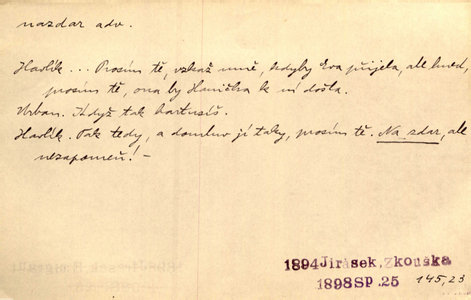 nazdar adv.
Havlík... Prosím tě, vzkaž mně, kdyby Eva přijela, ale hned,
prosím tě, ona by Hanička k ní došla.
Urban. Když tak hartusíš.
Havlík. Tak tedy, a domluv jí taky, prosím tě. Na zdar, ale
nezapomeň! –
1894 Jirásek, Zkouška
1898 SP. 25 145,23